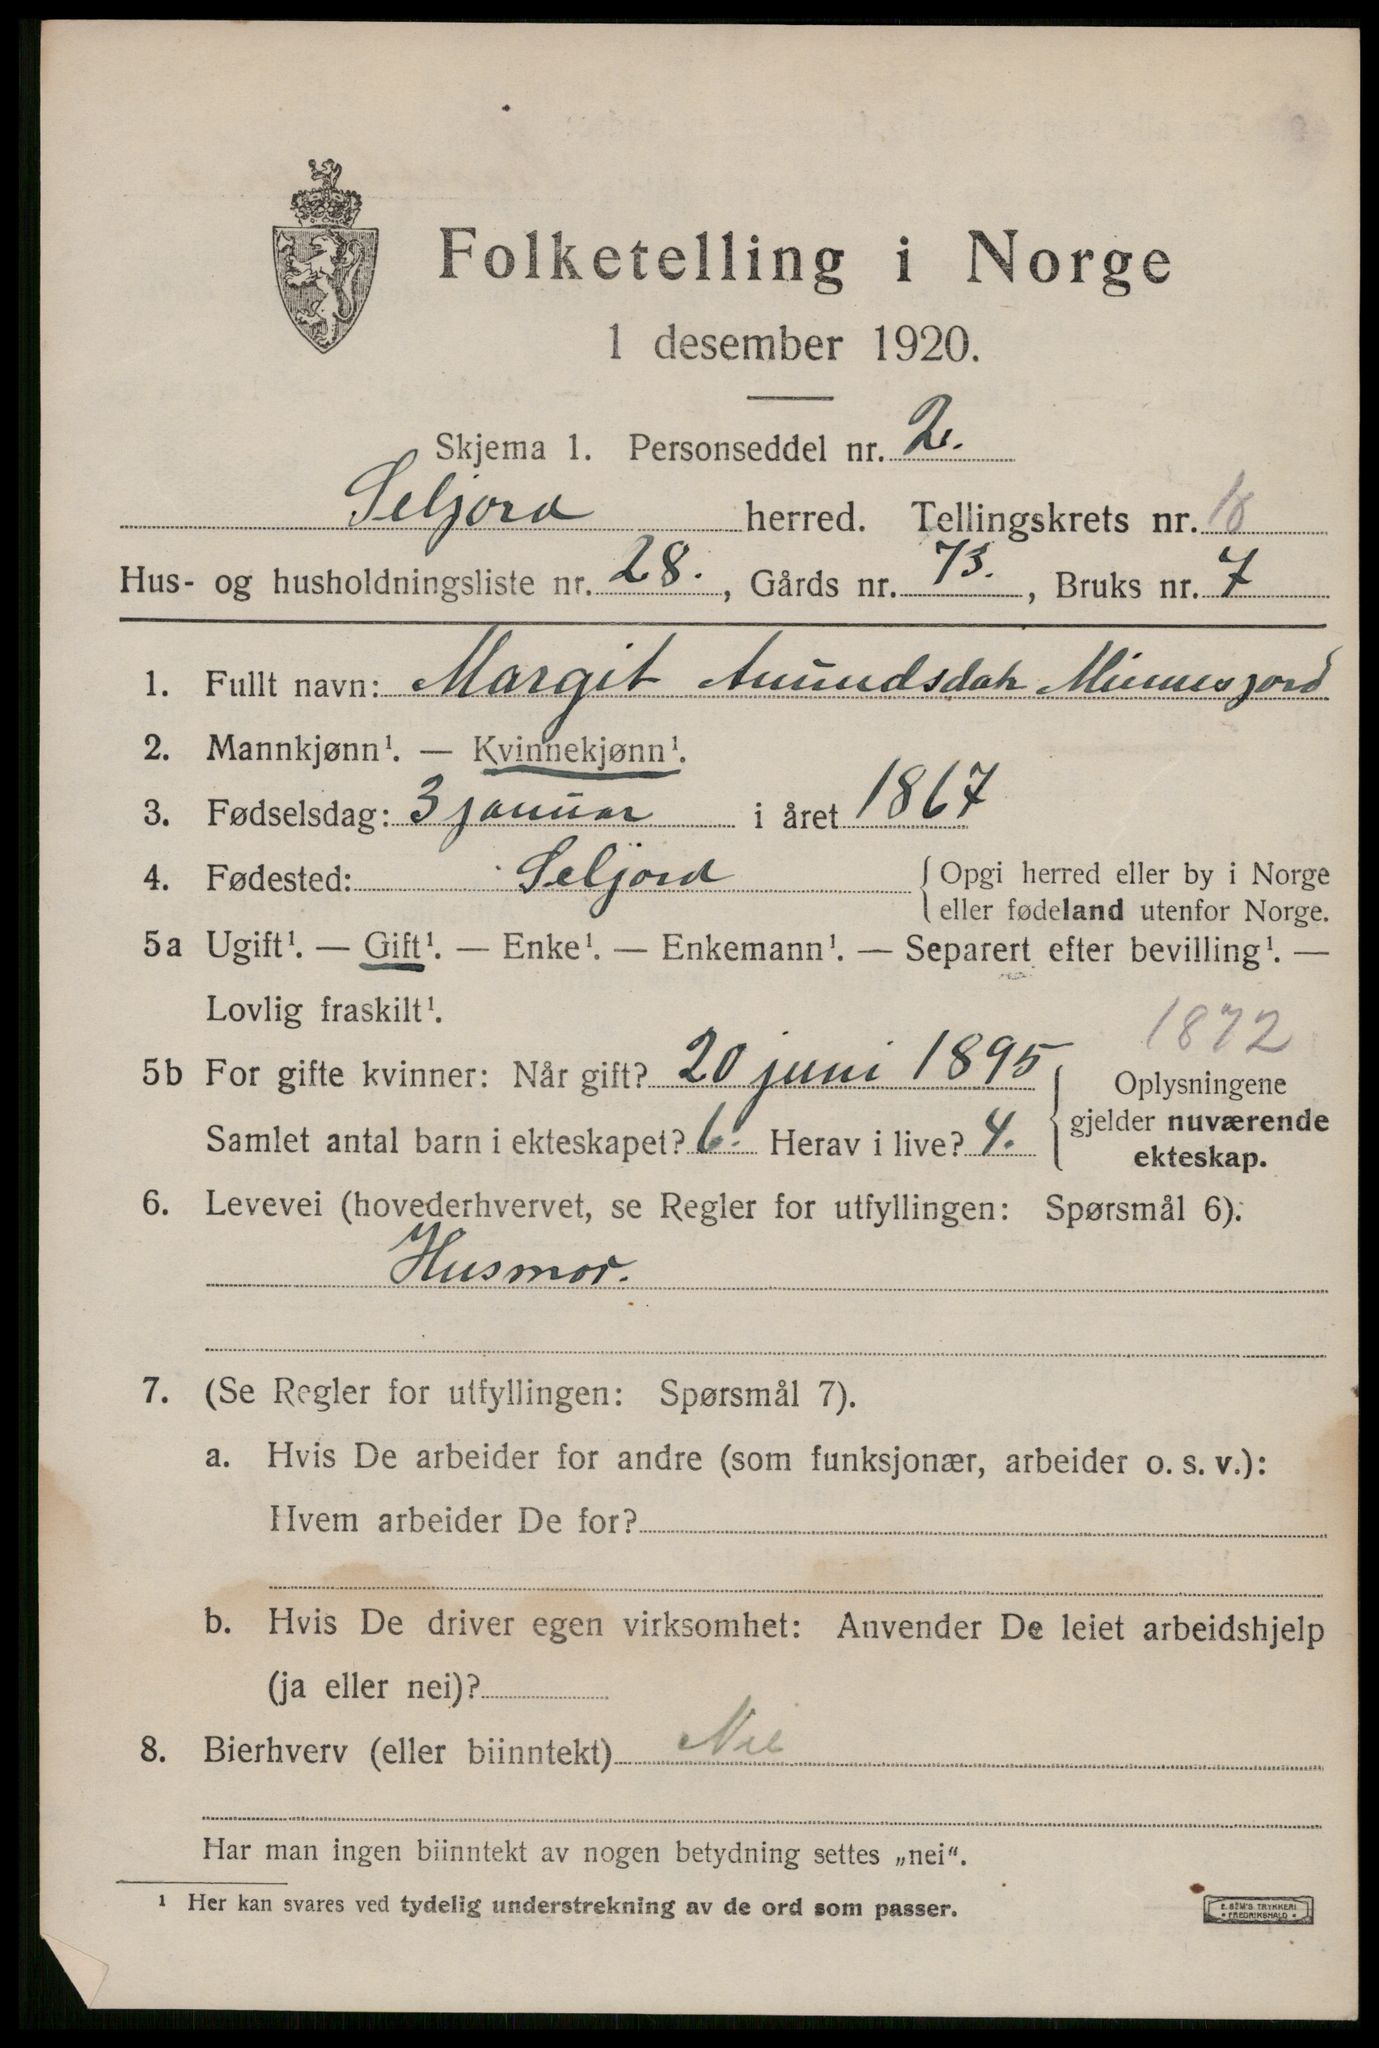 Folketelling i Norge
1 desember 1920.
Skjema 1. Personseddel nr. 2.
Seljord herred. Tellingskrets nr.
Hus- og husholdningsliste nr. 28., Gårds nr. 73., Bruks nr. 7
1. Fullt navn: Margit Amundsdatr Minnesjord
2. Mannkjønn¹. — Kvinnekjønn¹.
3. Fødselsdag: 3 januar i året 1867
4. Fødested: Seljord { Opgi herred eller by i Norge
eller fødeland utenfor Norge.
5a Ugift¹. — Gift¹. — Enke¹. — Enkemann¹. — Separert efter bevilling¹. —
Lovlig fraskilt¹.
1872
5b For gifte kvinner: Når gift? 20 juni 1895
Samlet antal barn i ekteskapet? 6. Herav i live? 4.
Oplysningene
gjelder nuværende
ekteskap.
6. Levevei (hovederhvervet, se Regler for utfyllingen: Spørsmål 6):
Husmor.
7. (Se Regler for utfyllingen: Spørsmål 7).
a. Hvis De arbeider for andre (som funksjonær, arbeider o. s. v.):
Hvem arbeider De for?
b. Hvis De driver egen virksomhet: Anvender De leiet arbeidshjelp
(ja eller nei)?
8. Bierhverv (eller biinntekt) Nei
Har man ingen biinntekt av nogen betydning settes „nei“.
¹ Her kan svares ved tydelig understrekning av de ord som passer.
E. SEM'S TRYKKERI
FREDRIKSHALD